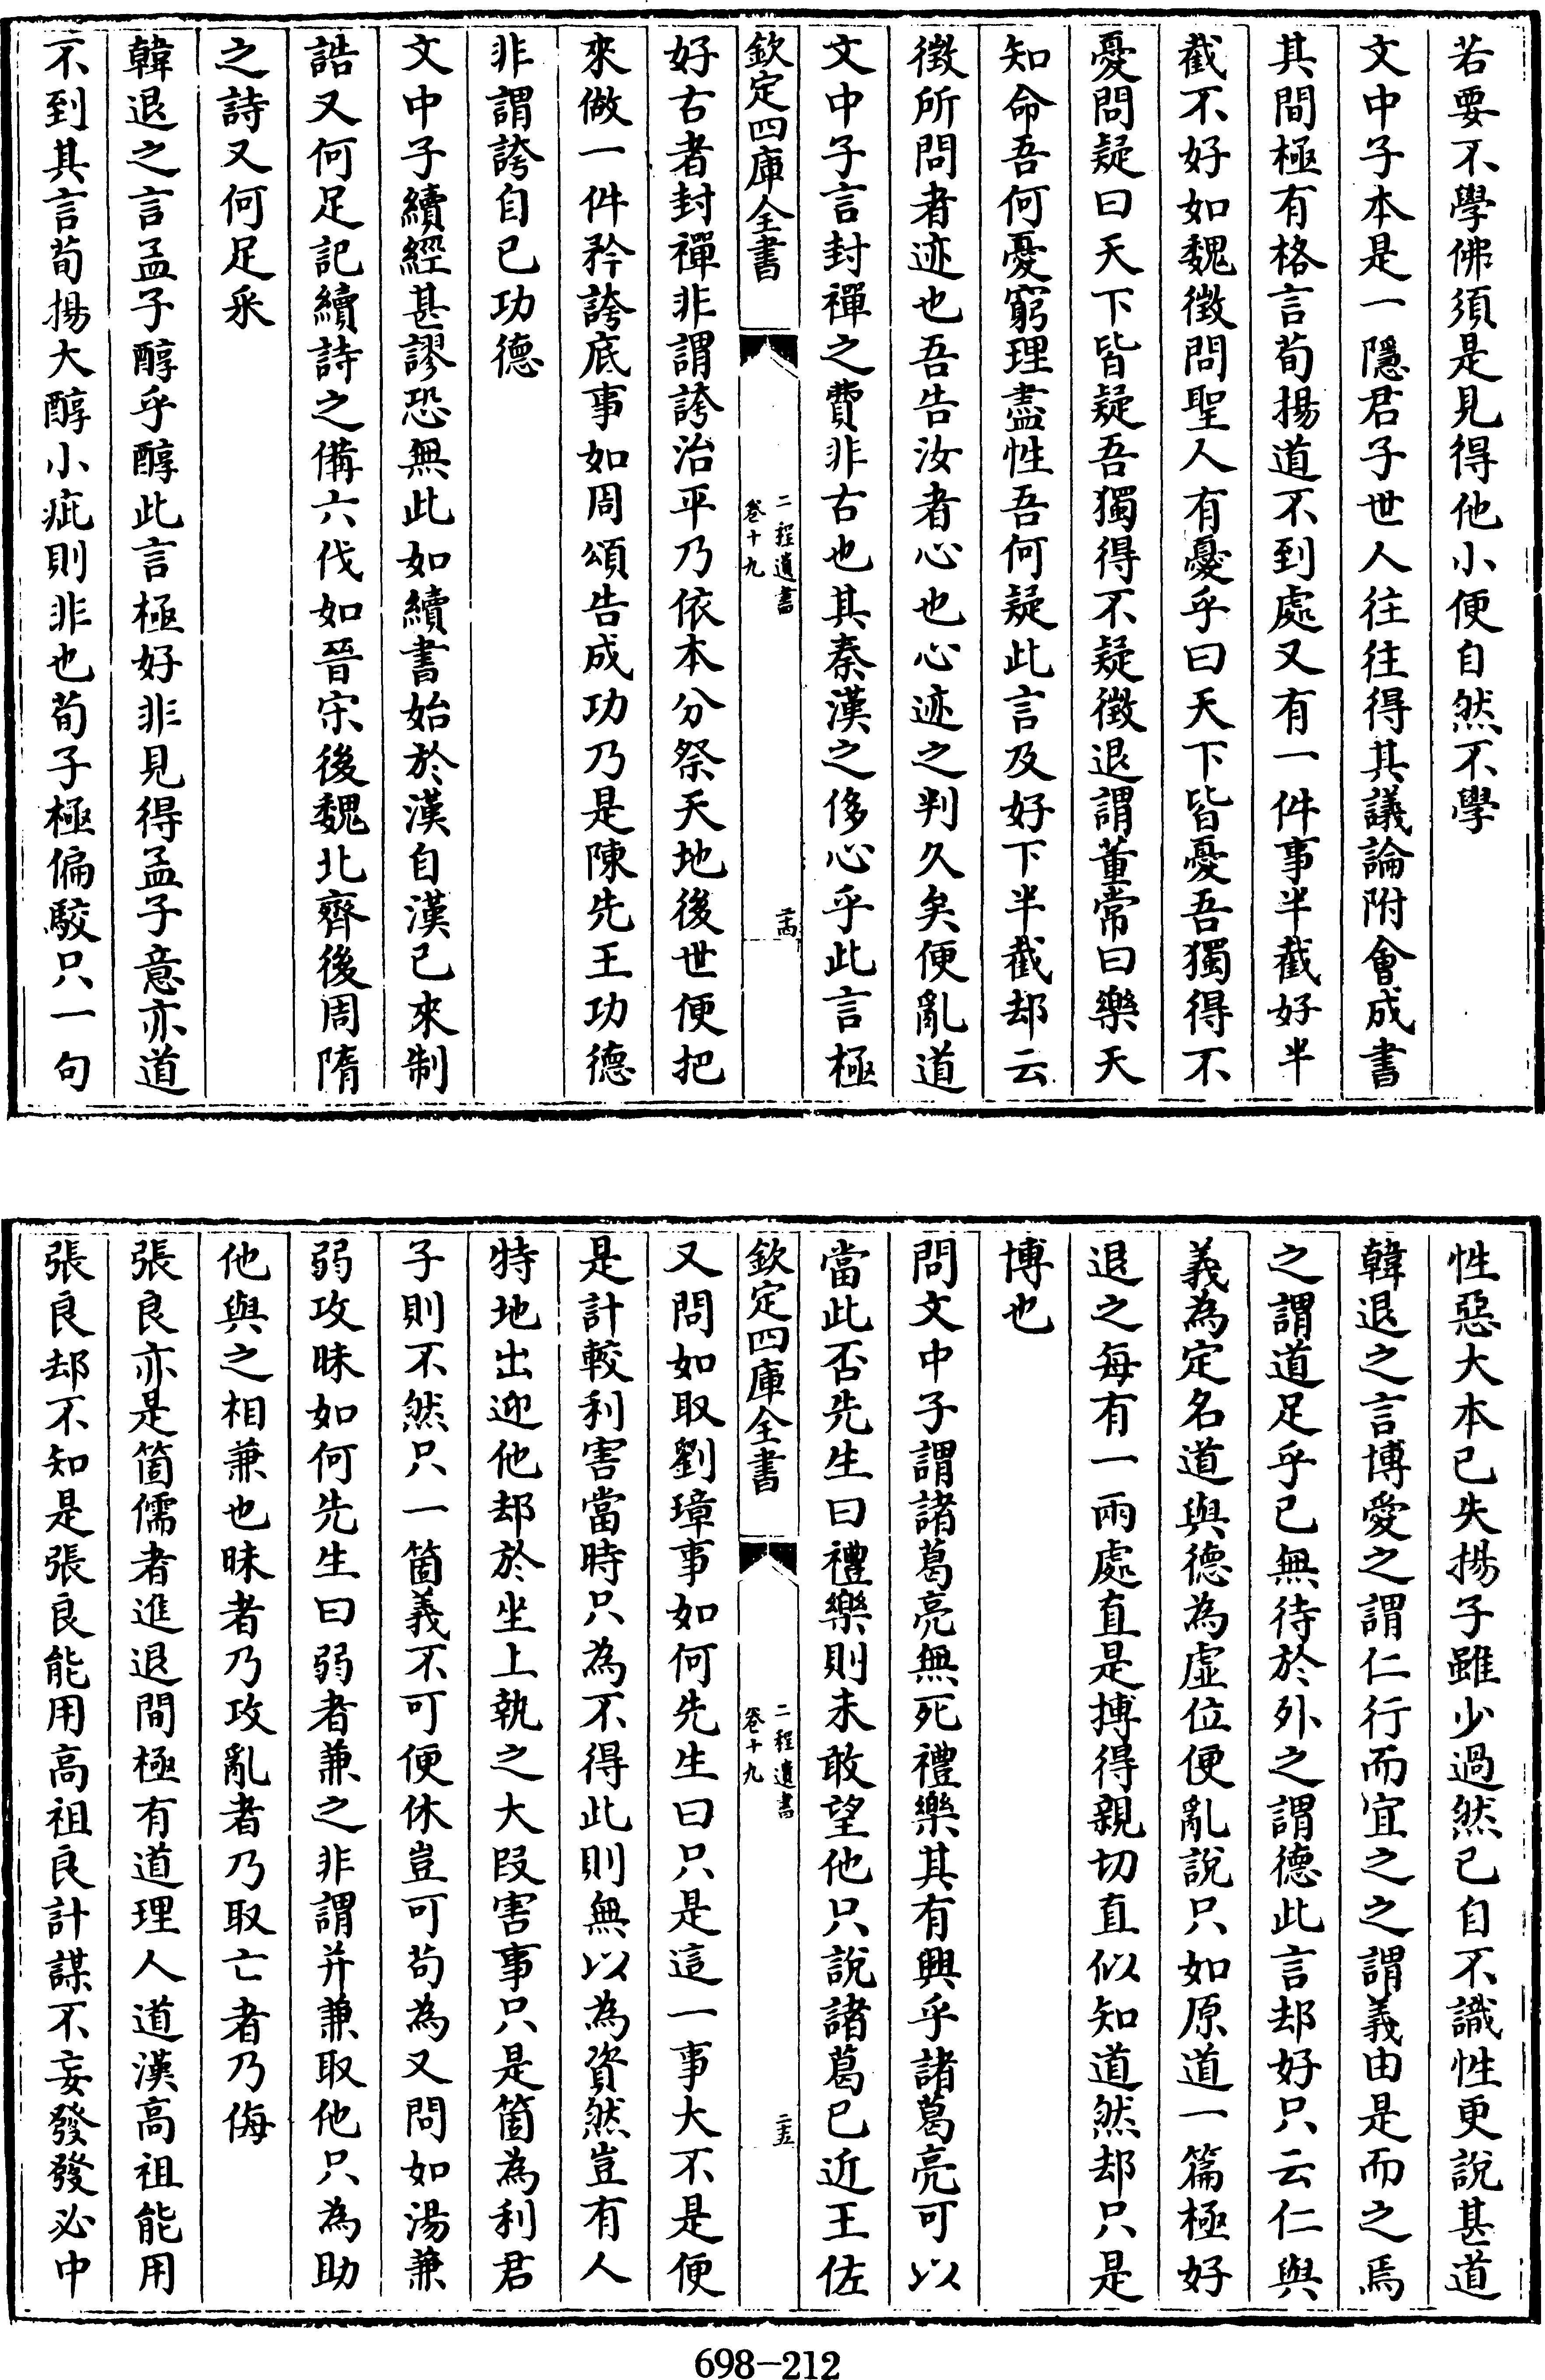 若要不學佛須是見得他小便自然不學
文中子本是一隱君子世人往往得其議論附會成書
其間極有格言荀揚道不到處又有一件事半截好半
截不好如魏徵問聖人有憂乎曰天下皆憂吾獨得不
憂問疑曰天下皆疑吾獨得不疑徵退謂董常曰樂天
知命吾何憂窮理盡性吾何疑此言及好下半截却云
徵所問者迹也吾告汝者心也心迹之判久矣便亂道
文中子言封禪之費非古也其秦漢之侈心乎此言極
欽定四庫全書
二程遺書
卷十九
二十四
好古者封禪非謂誇治平乃依本分祭天地後世便把
來做一件矜誇底事如周頌告成功乃是陳先王功德
非謂誇自已功德
文中子續經甚謬恐無此如續書始於漢自漢已來制
誥又何足記續詩之備六代如晉宋後魏北齊後周隋
之詩又何足采
韓退之言孟子醇乎醇此言極好非見得孟子意亦道
不到其言荀揚大醇小疵則非也荀子極偏駁只一句
性惡大本已失揚子雖少過然已自不識性更說甚道
韓退之言博愛之謂仁行而宜之之謂義由是而之焉
之謂道足乎已無待於外之謂德此言却好只云仁與
義為定名道與德為虛位便亂說只如原道一篇極好
退之每有一兩處直是搏得親切直似知道然却只是
博也
問文中子謂諸葛亮無死禮樂其有興乎諸葛亮可以
當此否先生曰禮樂則未敢望他只說諸葛已近王佐
欽定四庫全書
二程遺書
卷十九
二十五
又問如取劉璋事如何先生曰只是這一事大不是便
是計較利害當時只為不得此則無以為資然豈有人
特地出迎他却於坐上執之大段害事只是箇為利君
子則不然只一箇義不可便休豈可苟為又問如湯兼
弱攻昧如何先生曰弱者兼之非謂并兼取他只為助
他與之相兼也昧者乃攻亂者乃取亡者乃侮
張良亦是箇儒者進退間極有道理人道漢高祖能用
張良却不知是張良能用高祖良計謀不妄發發必中
698-212